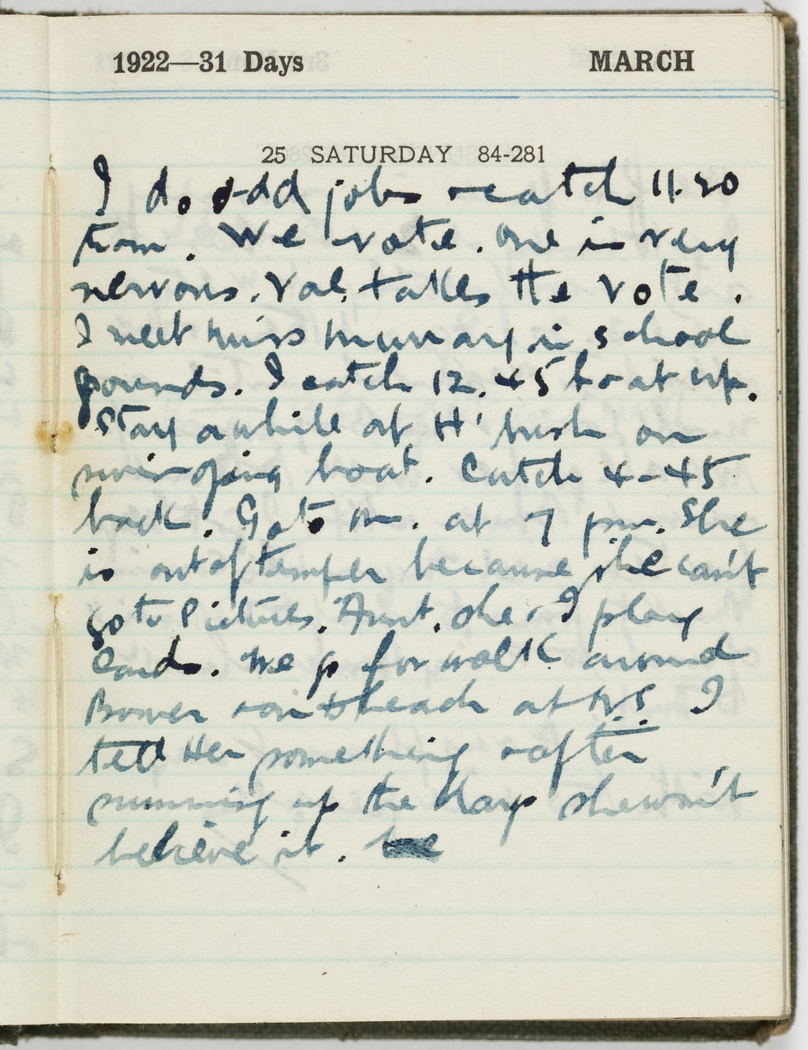 1922—31 Days MARCH
25 SATURDAY 84-281
I do odd jobs & catch 11.20
tram. We vote. One is very
nervous. Val. takes the vote.
I meet Miss Murray in school
grounds. I catch 12.45 boat up.
Stay awhile at H' bush on
swinging boat. Catch 4-45
back. Go to at 7 pm. She
is out of temper because she can't
go to Pictures. Aunt, she & I play
Cards. We go for walk around
Bower & on to beach at I
tell Her something & after
summing up the shewon't
believe it.